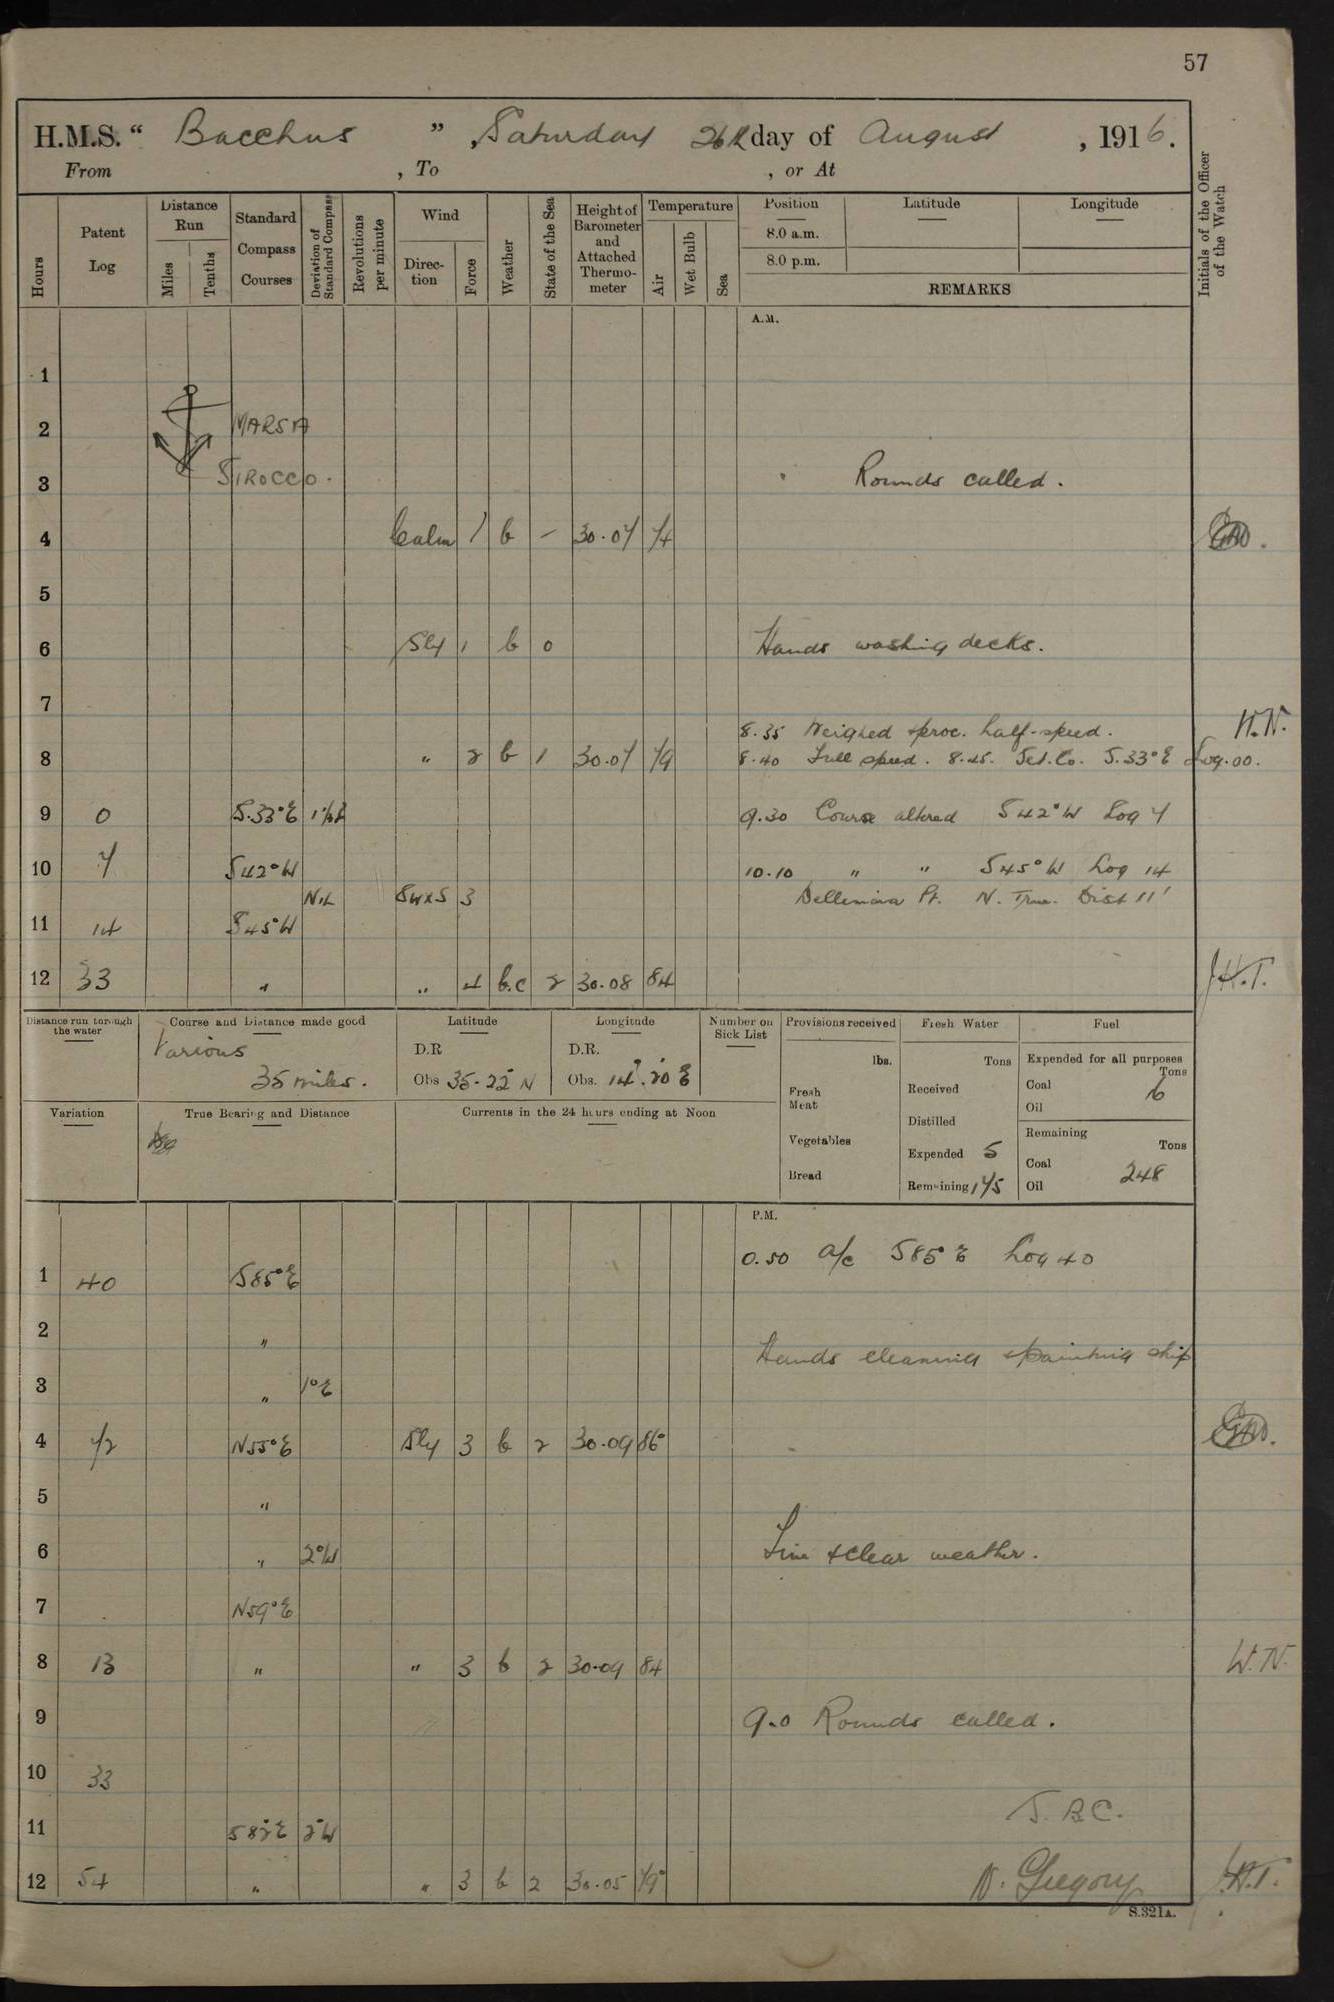 57
H.M.S. “ Bacchus ” , Saturday 26th day of August , 1916.
From , To , or At
Hours
Patent Log
Distance Run
Miles
Tenths
Standard Compass Courses
Deviation of Standard Compass
Revolutions per minute
Wind
Direction
Force
Weather
State of the Sea
Height of Barometer and Attached Thermometer
Temperature
Air
Wet Bulb
Sea
Position Latitude Longitude
8.0 a.m.
8.0 p.m.
REMARKS
Initials of the Officer of the Watch
A.M.
1
2 MARSA
3 SIROCCO. Rounds called.
4 Calm / b - 30.07 74
5
6 Sly 1 b 0 Hands washing decks.
7 W.N.
8.35 Weighed & proc. half-speed.
8 " 2 b 1 30.07 79 8.40 Full speed. 8.45. Set. Co. S.33°E Log.00.
9 0 S.33°E 9.30 Course altered S 42°W Log 7
10 7 S42°W 10.10 " " S45°W Log 14
Nil SWxS 3 Dellimara Pt. N. True. Dist 11'
11 14 S45°W
12 33 " " 4 b.c 2 30.08 84 H.T.
Distance run through the water
Course and Distance made good
Various
35 miles.
Latitude
D.R
Obs 35.22 N
Longitude
D.R.
Obs. 14.20 E
Number on Sick List
Provisions received
lbs.
Fresh Meat
Vegetables
Bread
Fresh Water
Tons
Received
Distilled
Expended 5
Remaining 175
Fuel
Expended for all purposes
Tons
Coal 16
Oil
Remaining
Tons
Coal 248
Oil
Variation
True Bearing and Distance
Currents in the 24 hours ending at Noon
P.M.
0.50 a/c S85°E Log 40
1 40 S85°E
2 "
Hands cleaning & painting ship
3 " 1°E
4 72 N55°E Sly 3 b 2 30.09 86
5 "
6 " 2°W Fine & clear weather.
7 N59°E
8 13 " " 3 b 2 30.09 84 W.N.
9 9.0 Rounds called.
10 33
11 S82°E 2°W
12 54 " " 3 b 2 30.05 79 N. Gregory H.T.
S.321A.